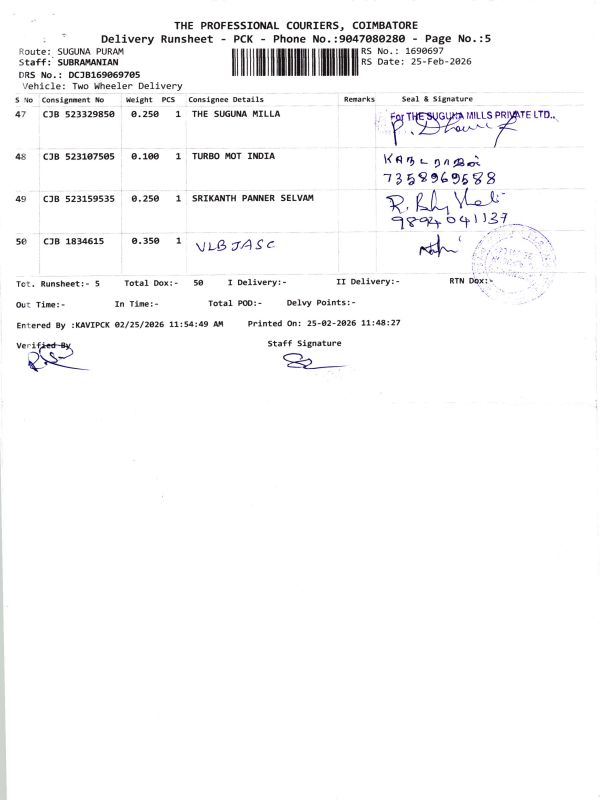 THE PROFESSIONAL COURIERS, COIMBATORE
Delivery Runsheet - PCK - Phone No.:9047080280 - Page No.:5
Route: SUGUNA PURAM RS No.: 1690697
Staff: SUBRAMANIAN RS Date: 25-Feb-2026
DRS No.: DCJB169069705
Vehicle: Two Wheeler Delivery
S No Consignment No Weight PCS Consignee Details Remarks Seal & Signature
47 CJB 523329850 0.250 1 THE SUGUNA MILLA For THE SUGUNA MILLS PRIVATE LTD.,
48 CJB 523107505 0.100 1 TURBO MOT INDIA
7358969588
49 CJB 523159535 0.250 1 SRIKANTH PANNER SELVAM
9894041137
50 CJB 1834615 0.350 1 VLBJASC
Tot. Runsheet:- 5 Total Dox:- 50 I Delivery:- II Delivery:- RTN Dox:-
Out Time:- In Time:- Total POD:- Delvy Points:-
Entered By :KAVIPCK 02/25/2026 11:54:49 AM Printed On: 25-02-2026 11:48:27
Verified By Staff Signature